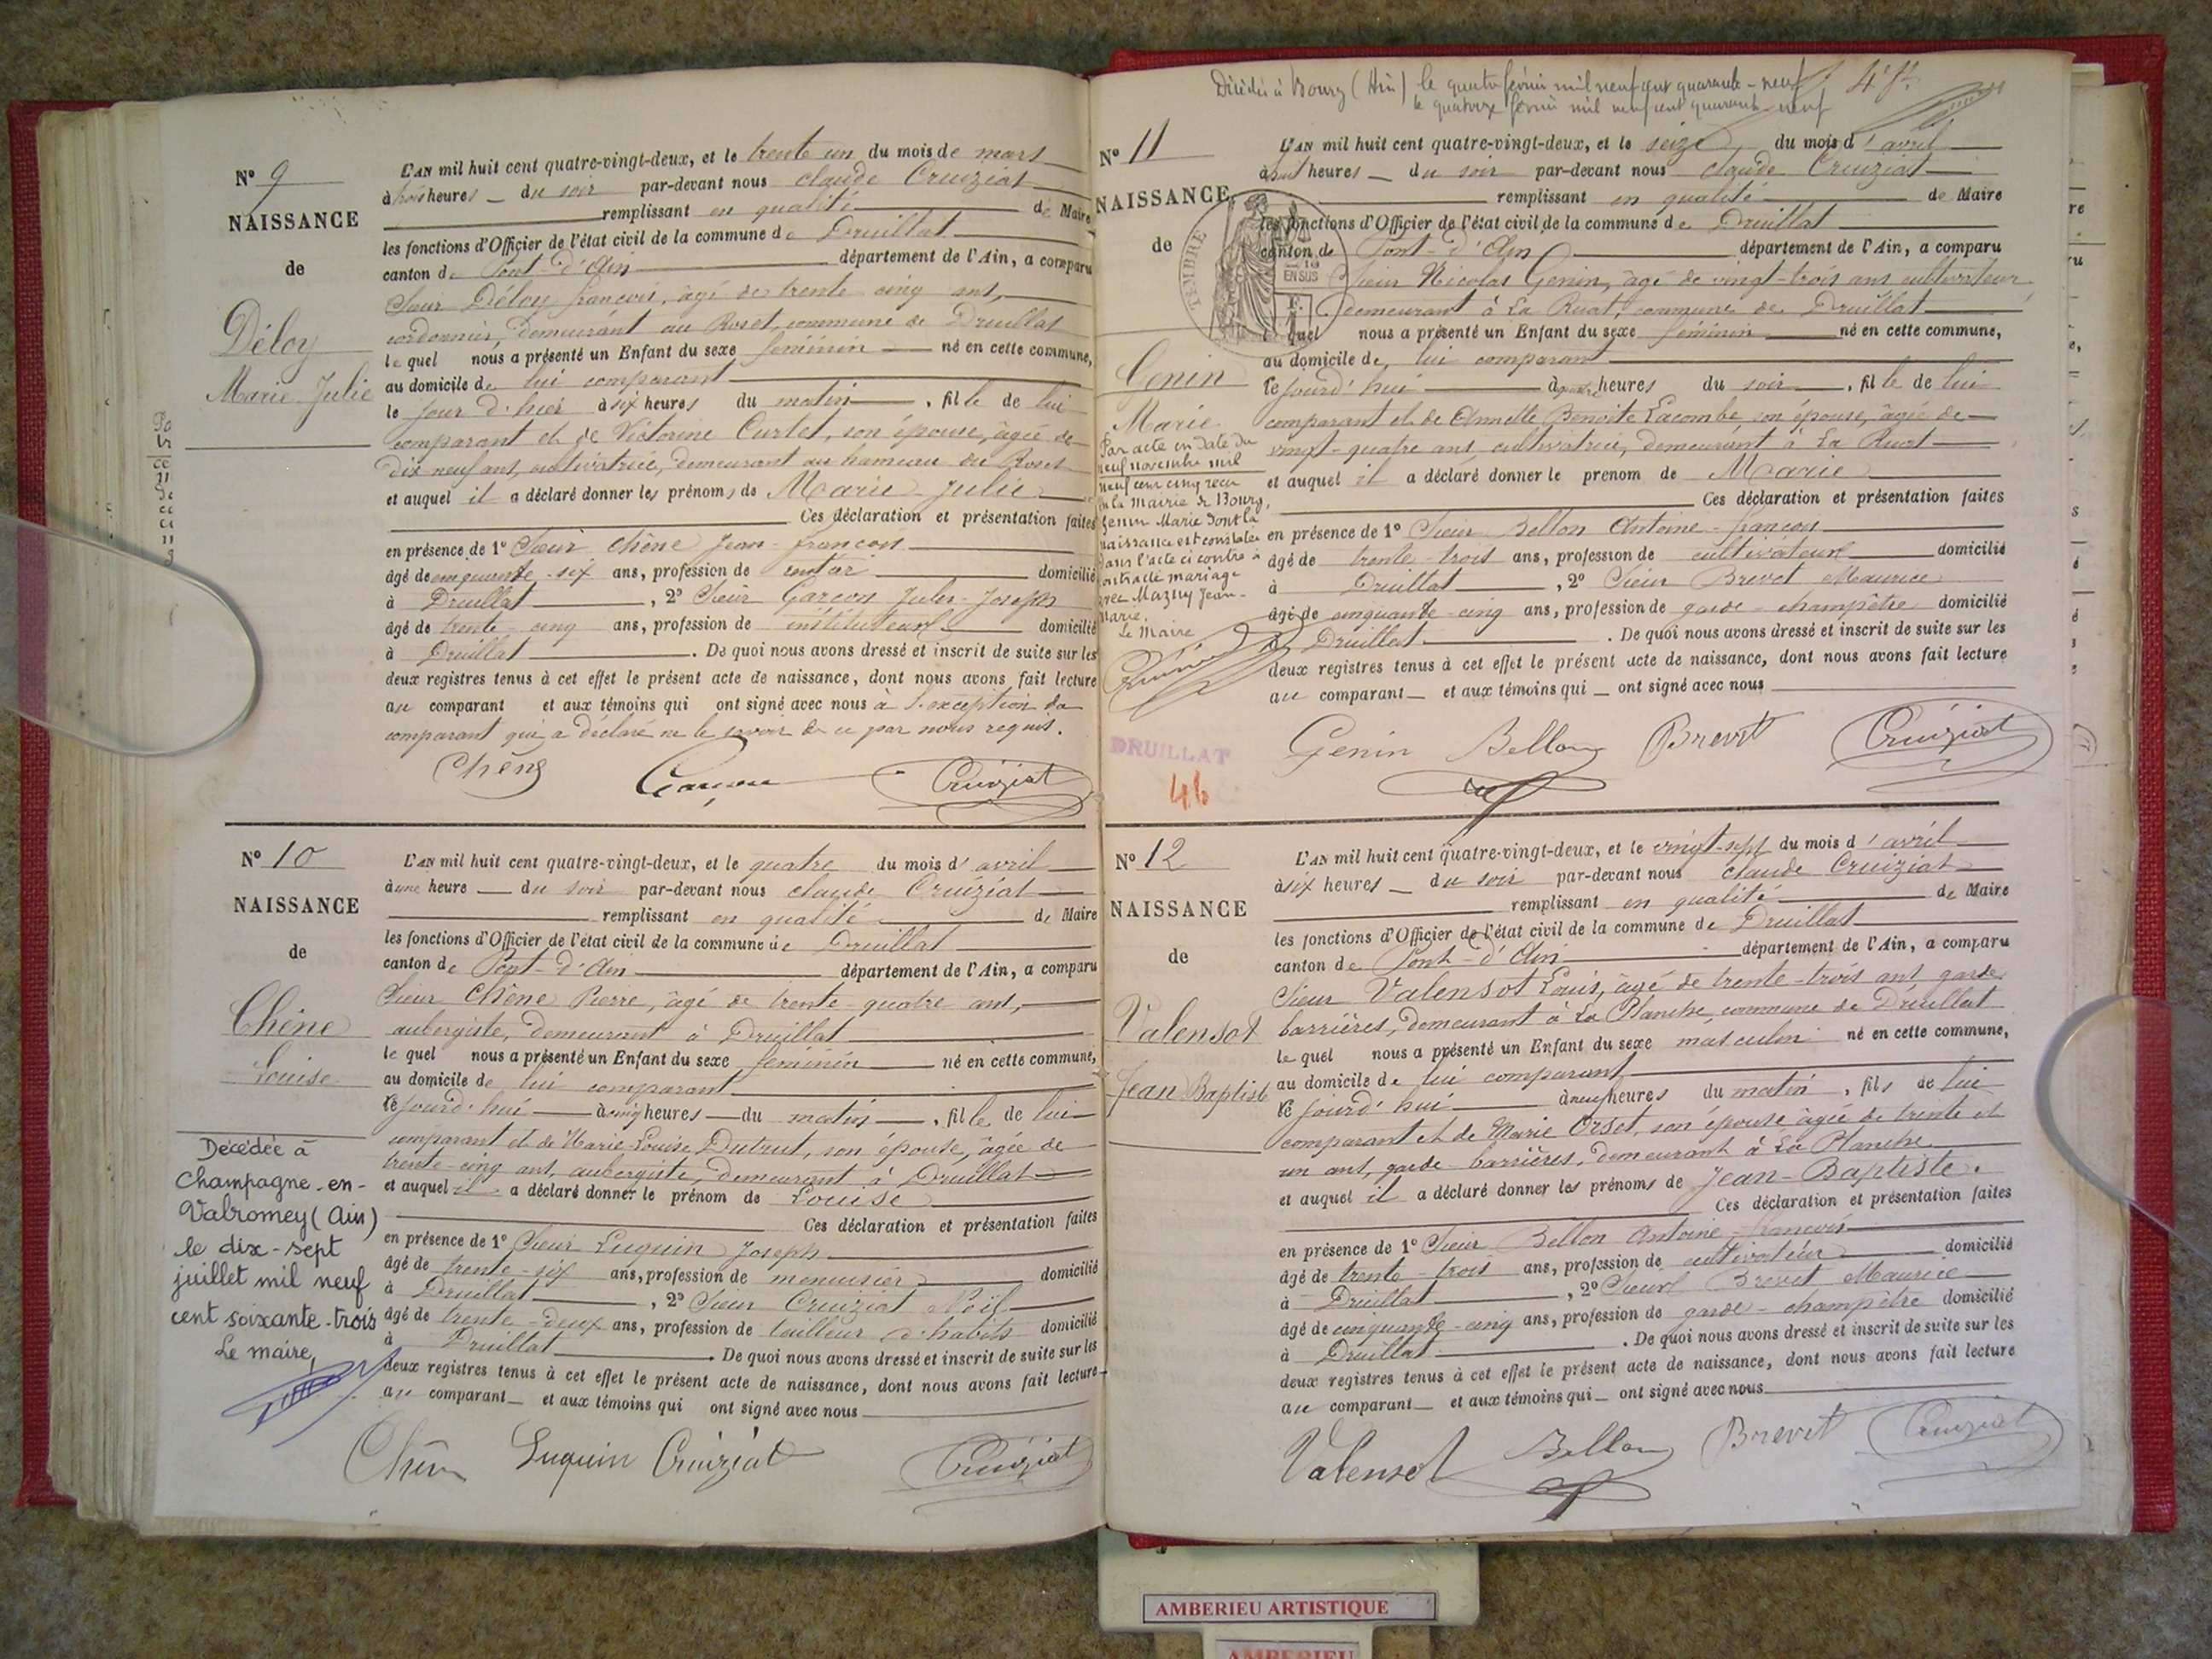 N° 9
NAISSANCE
de
Déloy
Marie-Julie
L'AN mil huit cent quatre-vingt-deux, et le trente un du mois de mars
à trois heures du soir par-devant nous claude Cruiziat
remplissant en qualité de Maire
les fonctions d'Officier de l'état civil de la commune de Druillat
canton de Pont-d'Ain département de l'Ain, a comparu
Sieur Déloy françois, âgé de trente cinq ans,
cordonnier, demeurant au Roset, commune de Druillat
le quel nous a présenté un Enfant du sexe féminin né en cette commune,
au domicile de lui comparant
le jour d'hier à six heures du matin, fille de lui
comparant et de Victorine Curlet, son épouse, âgée de
dix-neuf ans, cultivatrice, demeurant au hameau du Roset
et auquel il a déclaré donner les prénoms de Marie-Julie
Ces déclaration et présentation faites
en présence de 1° Sieur Chêne Jean-françois
âgé de cinquante-six ans, profession de domicilié
à Druillat, 2° Sieur Garcon Jules-Joseph
âgé de trente-cinq ans, profession de instituteur domicilié
à Druillat. De quoi nous avons dressé et inscrit de suite sur les
deux registres tenus à cet effet le présent acte de naissance, dont nous avons fait lecture
au comparant et aux témoins qui ont signé avec nous à l'exception du
comparant qui a déclaré ne le savoir de ce par nous requis.
Chêne Cruiziat
N° 10
NAISSANCE
de
Chêne
Louise
Décédée à
Champagne-en-
Valromey (Ain)
le dix-sept
juillet mil neuf
cent soixante-trois
Le maire,
L'AN mil huit cent quatre-vingt-deux, et le quatre du mois d'avril
à une heure du soir par-devant nous claude Cruiziat
remplissant en qualité de Maire
les fonctions d'Officier de l'état civil de la commune de Druillat
canton de Pont-d'Ain département de l'Ain, a comparu
Sieur Chêne Pierre, âgé de trente-quatre ans,
aubergiste, demeurant à Druillat
le quel nous a présenté un Enfant du sexe féminin né en cette commune,
au domicile de lui comparant
ce jourd'hui à cinq heures du matin, fille de lui
comparant et de Marie-Louise Dutrut, son épouse, âgée de
trente-cinq ans, aubergiste, demeurant à Druillat
et auquel il a déclaré donner le prénom de Louise
Ces déclaration et présentation faites
en présence de 1° Sieur Luquin Joseph
âgé de trente-six ans, profession de menuisier domicilié
à Druillat, 2° Sieur Cruiziat Noël
âgé de trente-deux ans, profession de tailleur d'habits domicilié
à Druillat. De quoi nous avons dressé et inscrit de suite sur les
deux registres tenus à cet effet le présent acte de naissance, dont nous avons fait lecture
au comparant et aux témoins qui ont signé avec nous
Chêne Luquin Cruiziat Cruiziat
Décédée à Bourg (Ain) le quatre février mil neuf cent quarante-neuf
le quatorze février mil neuf cent quarante-neuf
N° 11
NAISSANCE
de
TIMBRE
EN SUS
Genin
Marie
Par acte en date du
neuf novembre mil
neuf cent cinq reçu
en la mairie de Bourg,
Genin Marie dont la
naissance est constatée
dans l'acte ci contre a
contracté mariage
avec Mazuy Jean-
Marie.
Le Maire
DRUILLAT
46
L'AN mil huit cent quatre-vingt-deux, et le seize du mois d'avril
à huit heures du soir par-devant nous claude Cruiziat
remplissant en qualité de Maire
les fonctions d'Officier de l'état civil de la commune de Druillat
canton de Pont-d'Ain département de l'Ain, a comparu
Sieur Nicolas Genin, âgé de vingt-trois ans cultivateur
demeurant à La Ruat, commune de Druillat
le quel nous a présenté un Enfant du sexe féminin né en cette commune,
au domicile de lui comparant
ce jourd'hui à quatre heures du soir, fille de lui
comparant et de Annette Benoite Lacombe son épouse, âgée de
vingt-quatre ans, cultivatrice, demeurant à La Ruat
et auquel il a déclaré donner le prénom de Marie
Ces déclaration et présentation faites
en présence de 1° Sieur Bellon Antoine-françois
âgé de trente-trois ans, profession de cultivateur domicilié
à Druillat, 2° Sieur Brevet Maurice
âgé de cinquante-cinq ans, profession de garde-champêtre domicilié
à Druillat. De quoi nous avons dressé et inscrit de suite sur les
deux registres tenus à cet effet le présent acte de naissance, dont nous avons fait lecture
au comparant et aux témoins qui ont signé avec nous
Genin Bellon Brevet Cruiziat
N° 12
NAISSANCE
de
Valensot
Jean Baptiste
L'AN mil huit cent quatre-vingt-deux, et le vingt-sept du mois d'avril
à six heures du soir par-devant nous claude Cruiziat
remplissant en qualité de Maire
les fonctions d'Officier de l'état civil de la commune de Druillat
canton de Pont-d'Ain département de l'Ain, a comparu
Sieur Valensot Louis, âgé de trente-trois ans garde
barrières, demeurant à La Planche, commune de Druillat
le quel nous a présenté un Enfant du sexe masculin né en cette commune,
au domicile de lui comparant
ce jourd'hui à neuf heures du matin, fils de lui
comparant et de Marie Orset, son épouse âgée de trente et
un ans, garde-barrières, demeurant à La Planche
et auquel il a déclaré donner les prénoms de Jean-Baptiste.
Ces déclaration et présentation faites
en présence de 1° Sieur Bellon Antoine-françois
âgé de trente-trois ans, profession de cultivateur domicilié
à Druillat, 2° Sieur Brevet Maurice
âgé de cinquante-cinq ans, profession de garde-champêtre domicilié
à Druillat. De quoi nous avons dressé et inscrit de suite sur les
deux registres tenus à cet effet le présent acte de naissance, dont nous avons fait lecture
au comparant et aux témoins qui ont signé avec nous
Valensot Bellon Brevet Cruiziat
AMBERIEU ARTISTIQUE
AMBERIEU